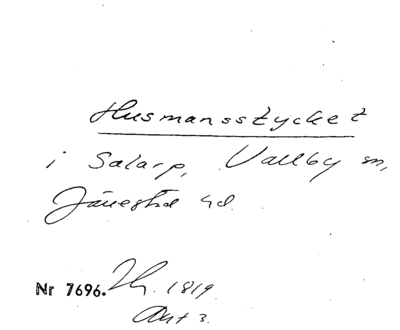 Husmansstycket
i Salarp, Vallby sn,
Järrestad hd.
Nr 7696. Th. 1819
Akt 3.